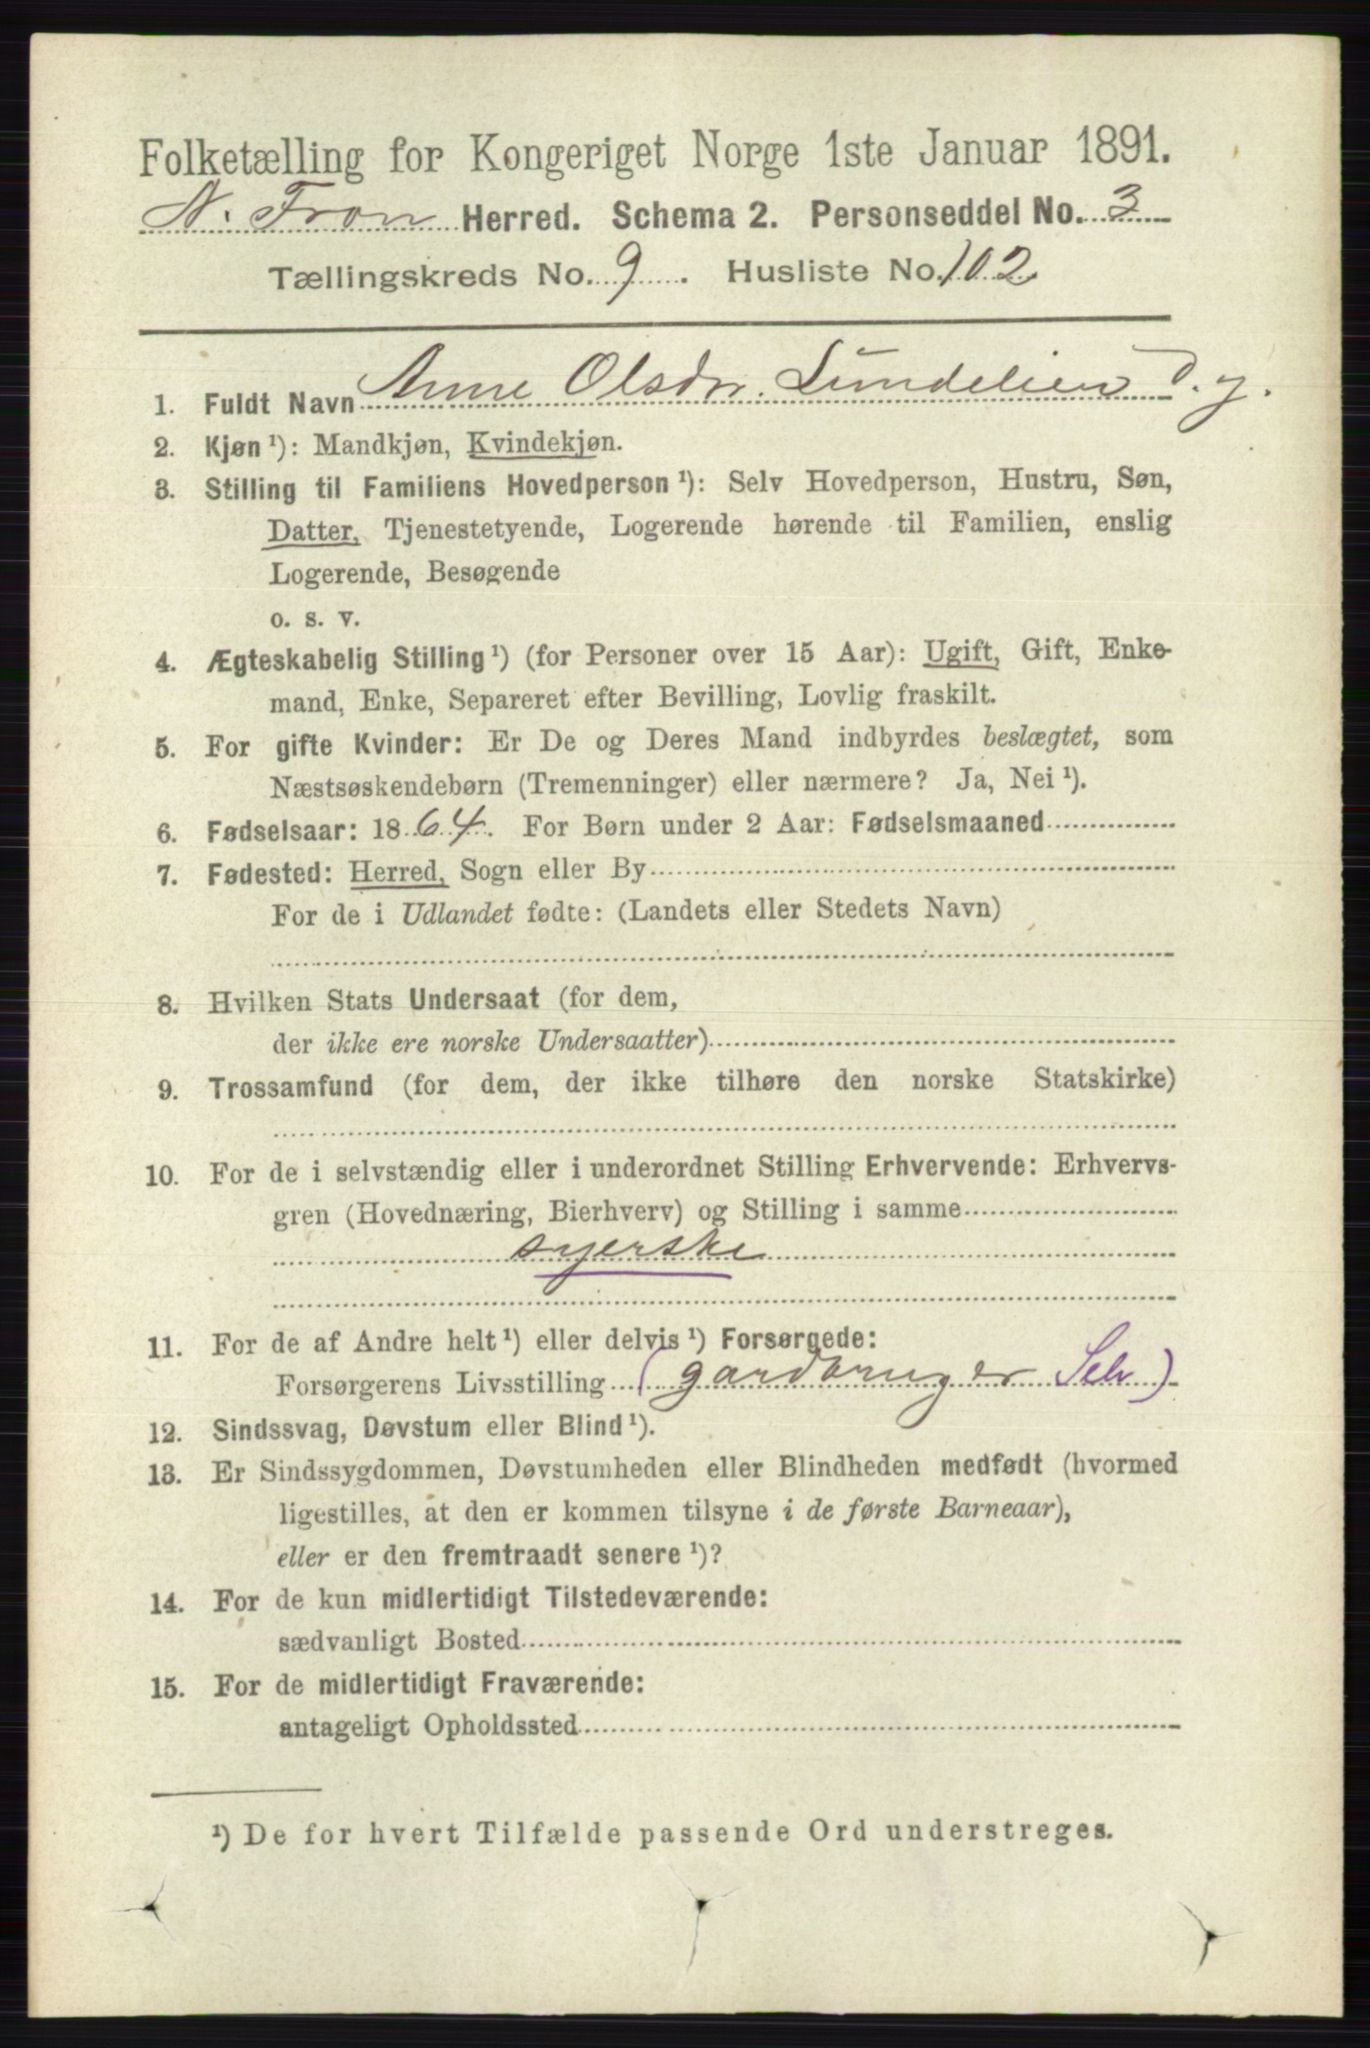 Folketælling for Kongeriget Norge 1ste Januar 1891.
N. Fron Herred. Schema 2. Personseddel No. 3
Tællingskreds No. 9. Husliste No. 102
1. Fuldt Navn Anne Olsdr. Lundelien d. y.
2. Kjøn ¹): Mandkjøn, Kvindekjøn.
3. Stilling til Familiens Hovedperson ¹): Selv Hovedperson, Hustru, Søn,
Datter, Tjenestetyende, Logerende hørende til Familien, enslig
Logerende, Besøgende
o. s. v.
4. Ægteskabelig Stilling ¹) (for Personer over 15 Aar): Ugift, Gift, Enke-
mand, Enke, Separeret efter Bevilling, Lovlig fraskilt.
5. For gifte Kvinder: Er De og Deres Mand indbyrdes beslægtet, som
Næstsøskendebørn (Tremenninger) eller nærmere? Ja, Nei ¹).
6. Fødselsaar: 1864. For Børn under 2 Aar: Fødselsmaaned
7. Fødested: Herred, Sogn eller By
For de i Udlandet fødte: (Landets eller Stedets Navn)
8. Hvilken Stats Undersaat (for dem,
der ikke ere norske Undersaatter)
9. Trossamfund (for dem, der ikke tilhøre den norske Statskirke)
10. For de i selvstændig eller i underordnet Stilling Erhvervende: Erhvervs-
gren (Hovednæring, Bierhverv) og Stilling i samme
syerske
11. For de af Andre helt ¹) eller delvis ¹) Forsørgede:
Forsørgerens Livsstilling (gardbruger Selv)
12. Sindssvag, Døvstum eller Blind ¹).
13. Er Sindssygdommen, Døvstumheden eller Blindheden medfødt (hvormed
ligestilles, at den er kommen tilsyne i de første Barneaar),
eller er den fremtraadt senere ¹)?
14. For de kun midlertidigt Tilstedeværende:
sædvanligt Bosted
15. For de midlertidigt Fraværende:
antageligt Opholdssted
¹) De for hvert Tilfælde passende Ord understreges.